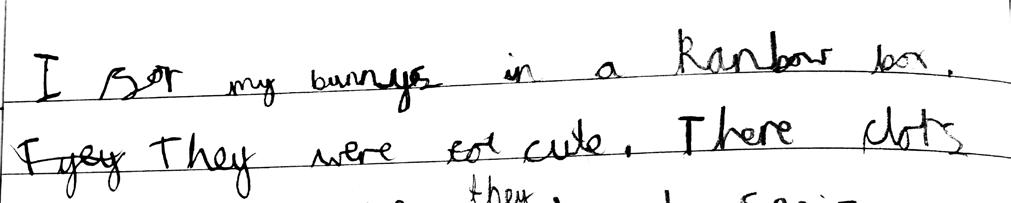 I sor my bunnys in a Ranbow box.
They were cute. There clots
they